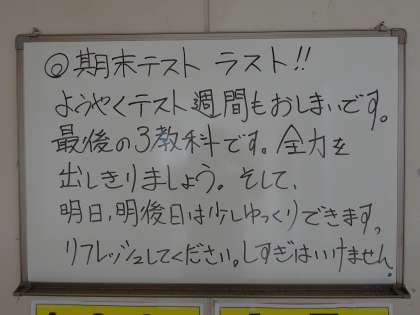 ◎期末テスト ラスト!!
ようやくテスト週間もおしまいです。
最後の3教科です。全力を
出しきりましょう。そして、
明日、明後日は少しゆっくりできます。
リフレッシュしてください。しすぎはいけません。